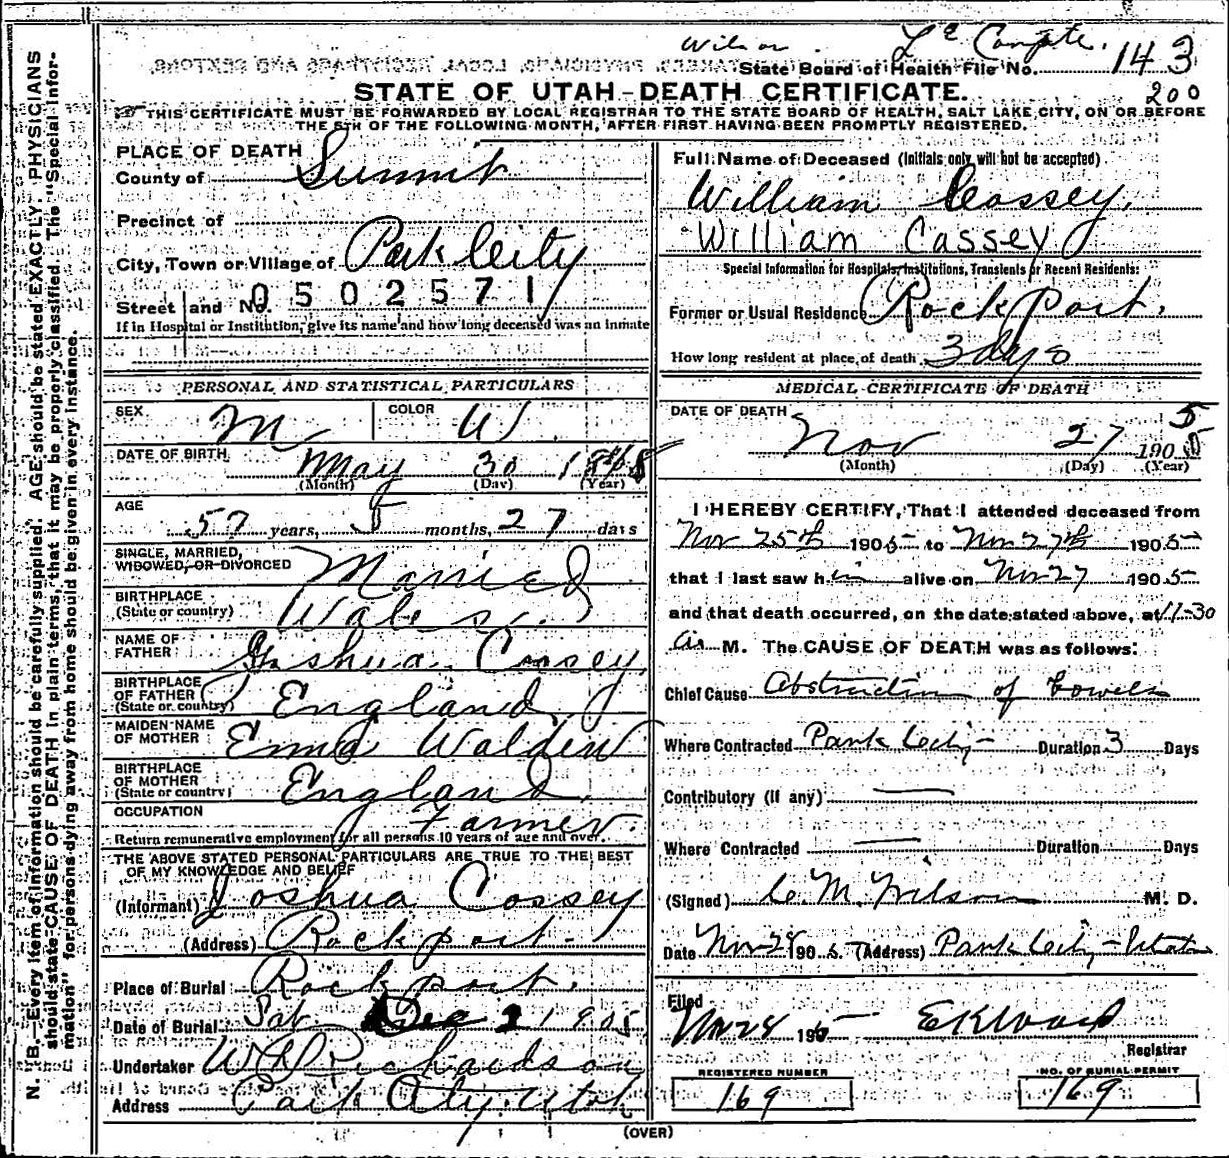 Wilson. Le Compte.
State Board of Health File No. 143
STATE OF UTAH-DEATH CERTIFICATE. 200
THIS CERTIFICATE MUST BE FORWARDED BY LOCAL REGISTRAR TO THE STATE BOARD OF HEALTH, SALT LAKE CITY, ON OR BEFORE
THE 5TH OF THE FOLLOWING MONTH, AFTER FIRST HAVING BEEN PROMPTLY REGISTERED.
PLACE OF DEATH
County of Summit
Precinct of
City, Town or Village of Park City
Street and No. 0502571
If in Hospital or Institution, give its name and how long deceased was an inmate
PERSONAL AND STATISTICAL PARTICULARS
SEX M COLOR W
DATE OF BIRTH May 30 1848
(Month) (Day) (Year)
AGE
57 years, 5 months, 27 days
SINGLE, MARRIED,
WIDOWED, OR DIVORCED Married
BIRTHPLACE
(State or country) Wales
NAME OF
FATHER Joshua Cossey
BIRTHPLACE
OF FATHER
(State or country) England
MAIDEN NAME
OF MOTHER Emma
BIRTHPLACE
OF MOTHER
(State or country) England
OCCUPATION Farmer
Return remunerative employment for all persons 10 years of age and over.
THE ABOVE STATED PERSONAL PARTICULARS ARE TRUE TO THE BEST
OF MY KNOWLEDGE AND BELIEF
(Informant) Joshua Cossey
(Address) Rockport
Place of Burial Rockport.
Date of Burial Sat Dec 2 1905
Undertaker W D Richardson
Address Park City Utah
Full Name of Deceased (Initials only will not be accepted)
William Cossey.
William Cassey
Special Information for Hospitals, Institutions, Transients or Recent Residents:
Former or Usual Residence Rockport.
How long resident at place of death 3 days
MEDICAL CERTIFICATE OF DEATH
DATE OF DEATH 5
Nov 27 1905
(Month) (Day) (Year)
I HEREBY CERTIFY, That I attended deceased from
Nov 25th 1905 to Nov 27th 1905
that I last saw him alive on Nov 27 1905
and that death occurred, on the date stated above, at 11-30
a. M. The CAUSE OF DEATH was as follows:
Chief Cause Obstruction of bowels
Where Contracted Park City - Duration 3 Days
Contributory (if any)
Where Contracted Duration Days
(Signed) C. M. Wilson M. D.
Date Nov 28 1905. (Address) Park City - Utah
Filed
Nov 28 1905 E K Wood
Registrar
REGISTERED NUMBER NO. OF BURIAL PERMIT
169 169
(OVER)
N. B.—Every item of information should be carefully supplied. AGE should be stated EXACTLY. PHYSICIANS
should state CAUSE OF DEATH in plain terms, that it may be properly classified. The "Special Infor-
mation" for persons dying away from home should be given in every instance.